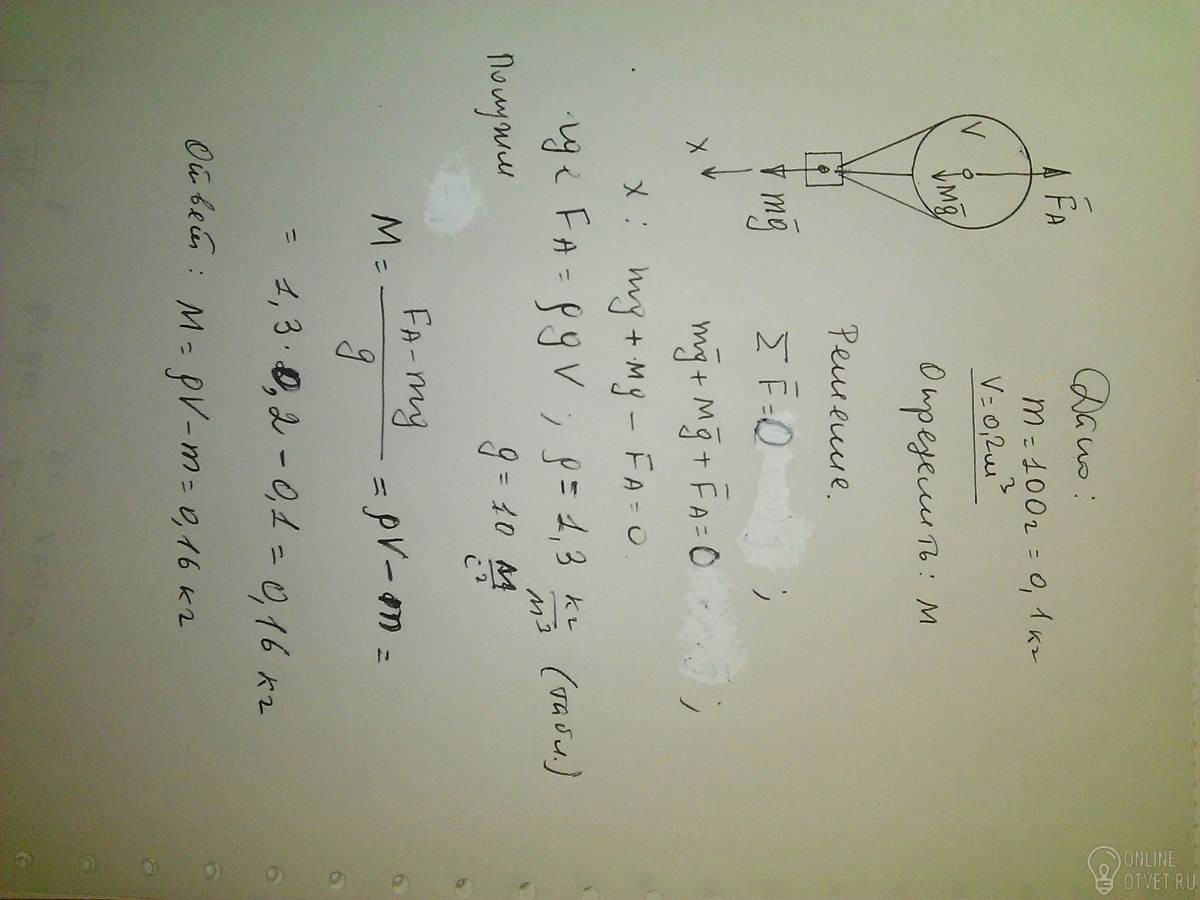 Дано:
m = 100 г = 0,1 кг
V = 0,2 м³
Определить: M
Решение.
Σ F̄ = 0 ;
mḡ + Mḡ + F̄A = 0 ;
x: mg + Mg − FA = 0.
где FA = ρgV ; ρ = 1,3 кг/м³ (табл.)
g = 10 м/с²
Получим
M = (FA − mg)/g = ρV − m =
= 1,3 · 0,2 − 0,1 = 0,16 кг
Ответ: M = ρV − m = 0,16 кг
F̄A
V
O
Mḡ
mḡ
x
ONLINE
OTVET.RU